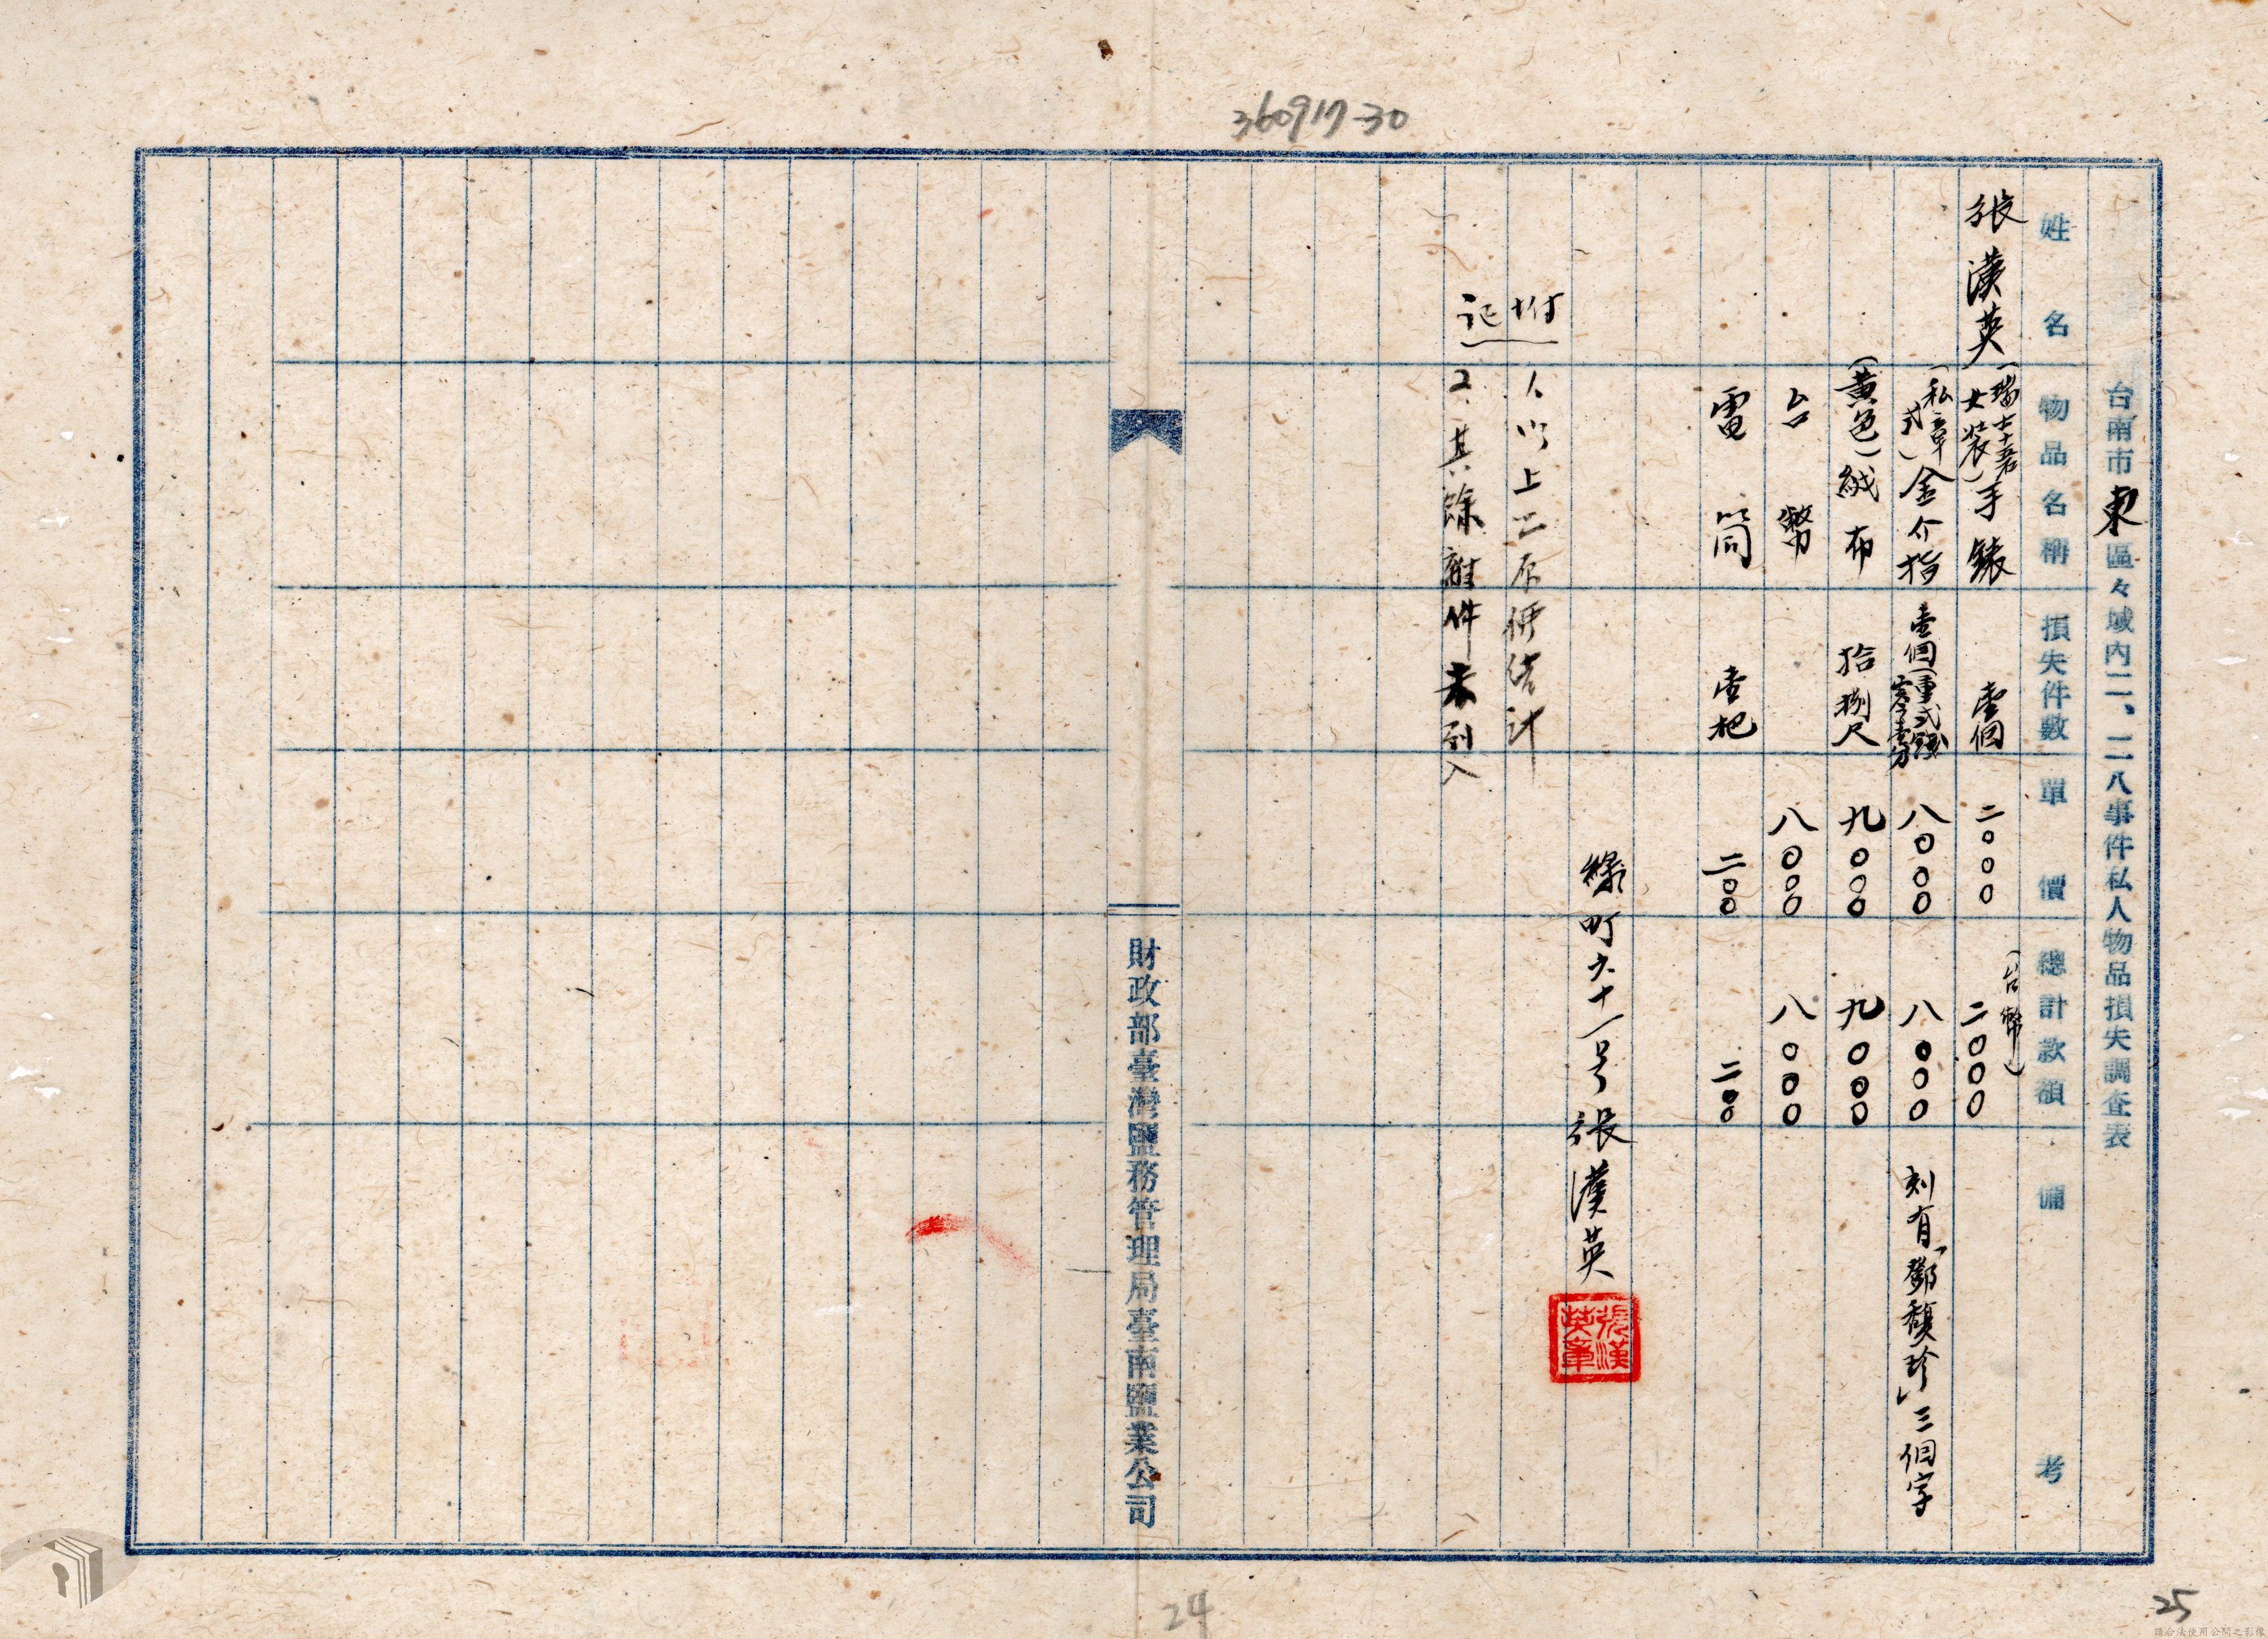 360917-30
台南市東區々域內二、二八事件私人物品損失調查表
姓名 物品名稱 損失件數 單價 總計款額 備考
(台幣)
張漢英 (瑞士十五石女裝)手錶 壹個 二〇〇〇 二〇〇〇
(私章式)金介指 壹個(重弍錢零壹分 八〇〇〇 八〇〇〇 刻有「鄧馥珍」三個字
(黃色)絨布 拾捌尺 九〇〇〇 九〇〇〇
台幣 八〇〇〇 八〇〇〇
電筒 壹把 二〇〇 二〇〇
綠町六十一号張漢英
張漢英章
附記
1、以上照原價估計
2、其餘雜件未列入
財政部臺灣鹽務管理局臺南鹽業公司
24
25
請合法使用公開之影像